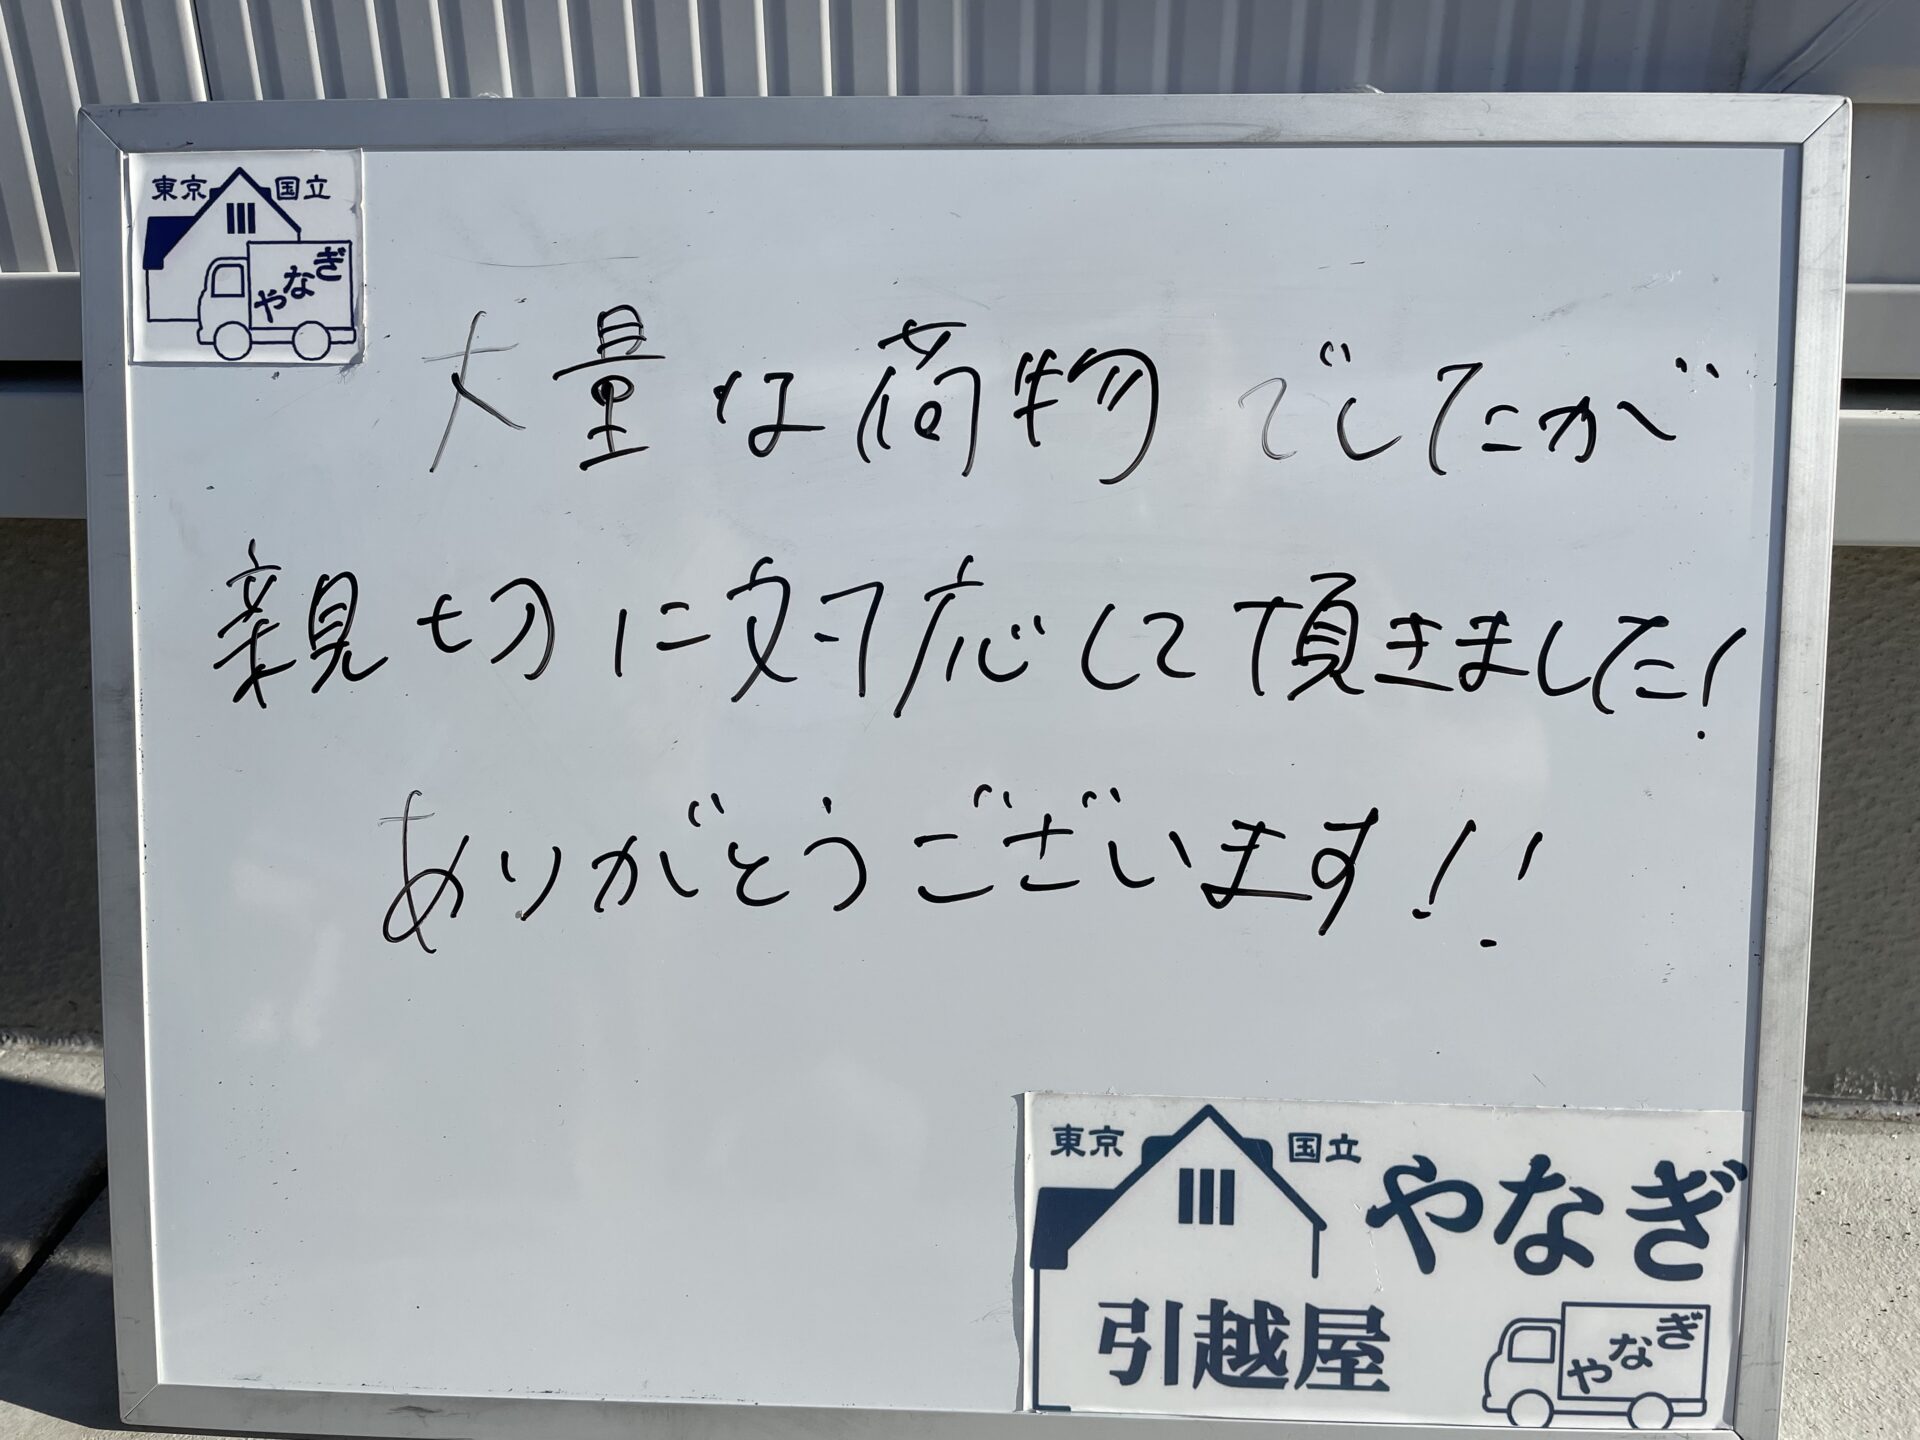 東京 国立
やなぎ
大量な荷物でしたが
親切に対応して頂きました!
ありがとうございます!!
東京 国立
やなぎ
引越屋
やなぎ